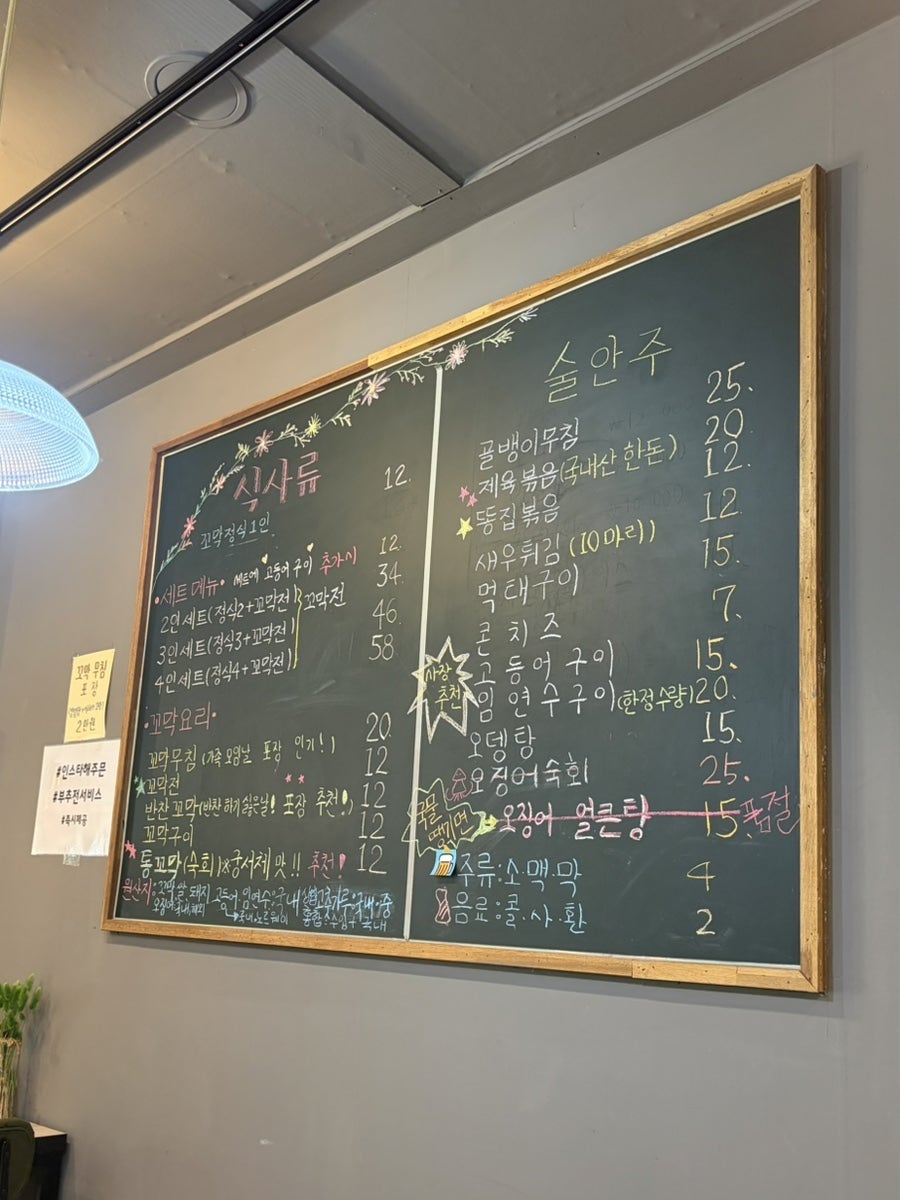 식사류
꼬막정식 1인 12.
•세트메뉴• 세트에 고등어구이 추가시 12.
2인세트(정식2+꼬막전) 34.
꼬막전
3인세트(정식3+꼬막전) 46.
4인세트(정식4+꼬막전) 58.
•꼬막요리•
꼬막무침 (가족 모임날 포장 인기!) 20.
꼬막전 12
반찬꼬막(반찬 하기 싫은날! 포장 추천!) 12
꼬막구이 12
통꼬막(숙회) 추천! 12
원산지:꼬막 쌀 돼지 고등어 임연수:국내
오징어
술안주
골뱅이무침 25.
제육볶음(국내산 한돈) 20.
똥집볶음 12.
새우튀김 (10마리) 12
먹태구이 15.
콘치즈 7.
고등어 구이 15.
사장 추천
임연수구이(한정수량) 20.
오뎅탕 15.
오징어숙회 25.
국물 땡기면
오징어 얼큰탕 15. 품절
주류:소.맥.막 4
음료:콜.사.환 2
꼬막 무침
포장
2만원
#인스타해주문
#부추전서비스
#즉시제공